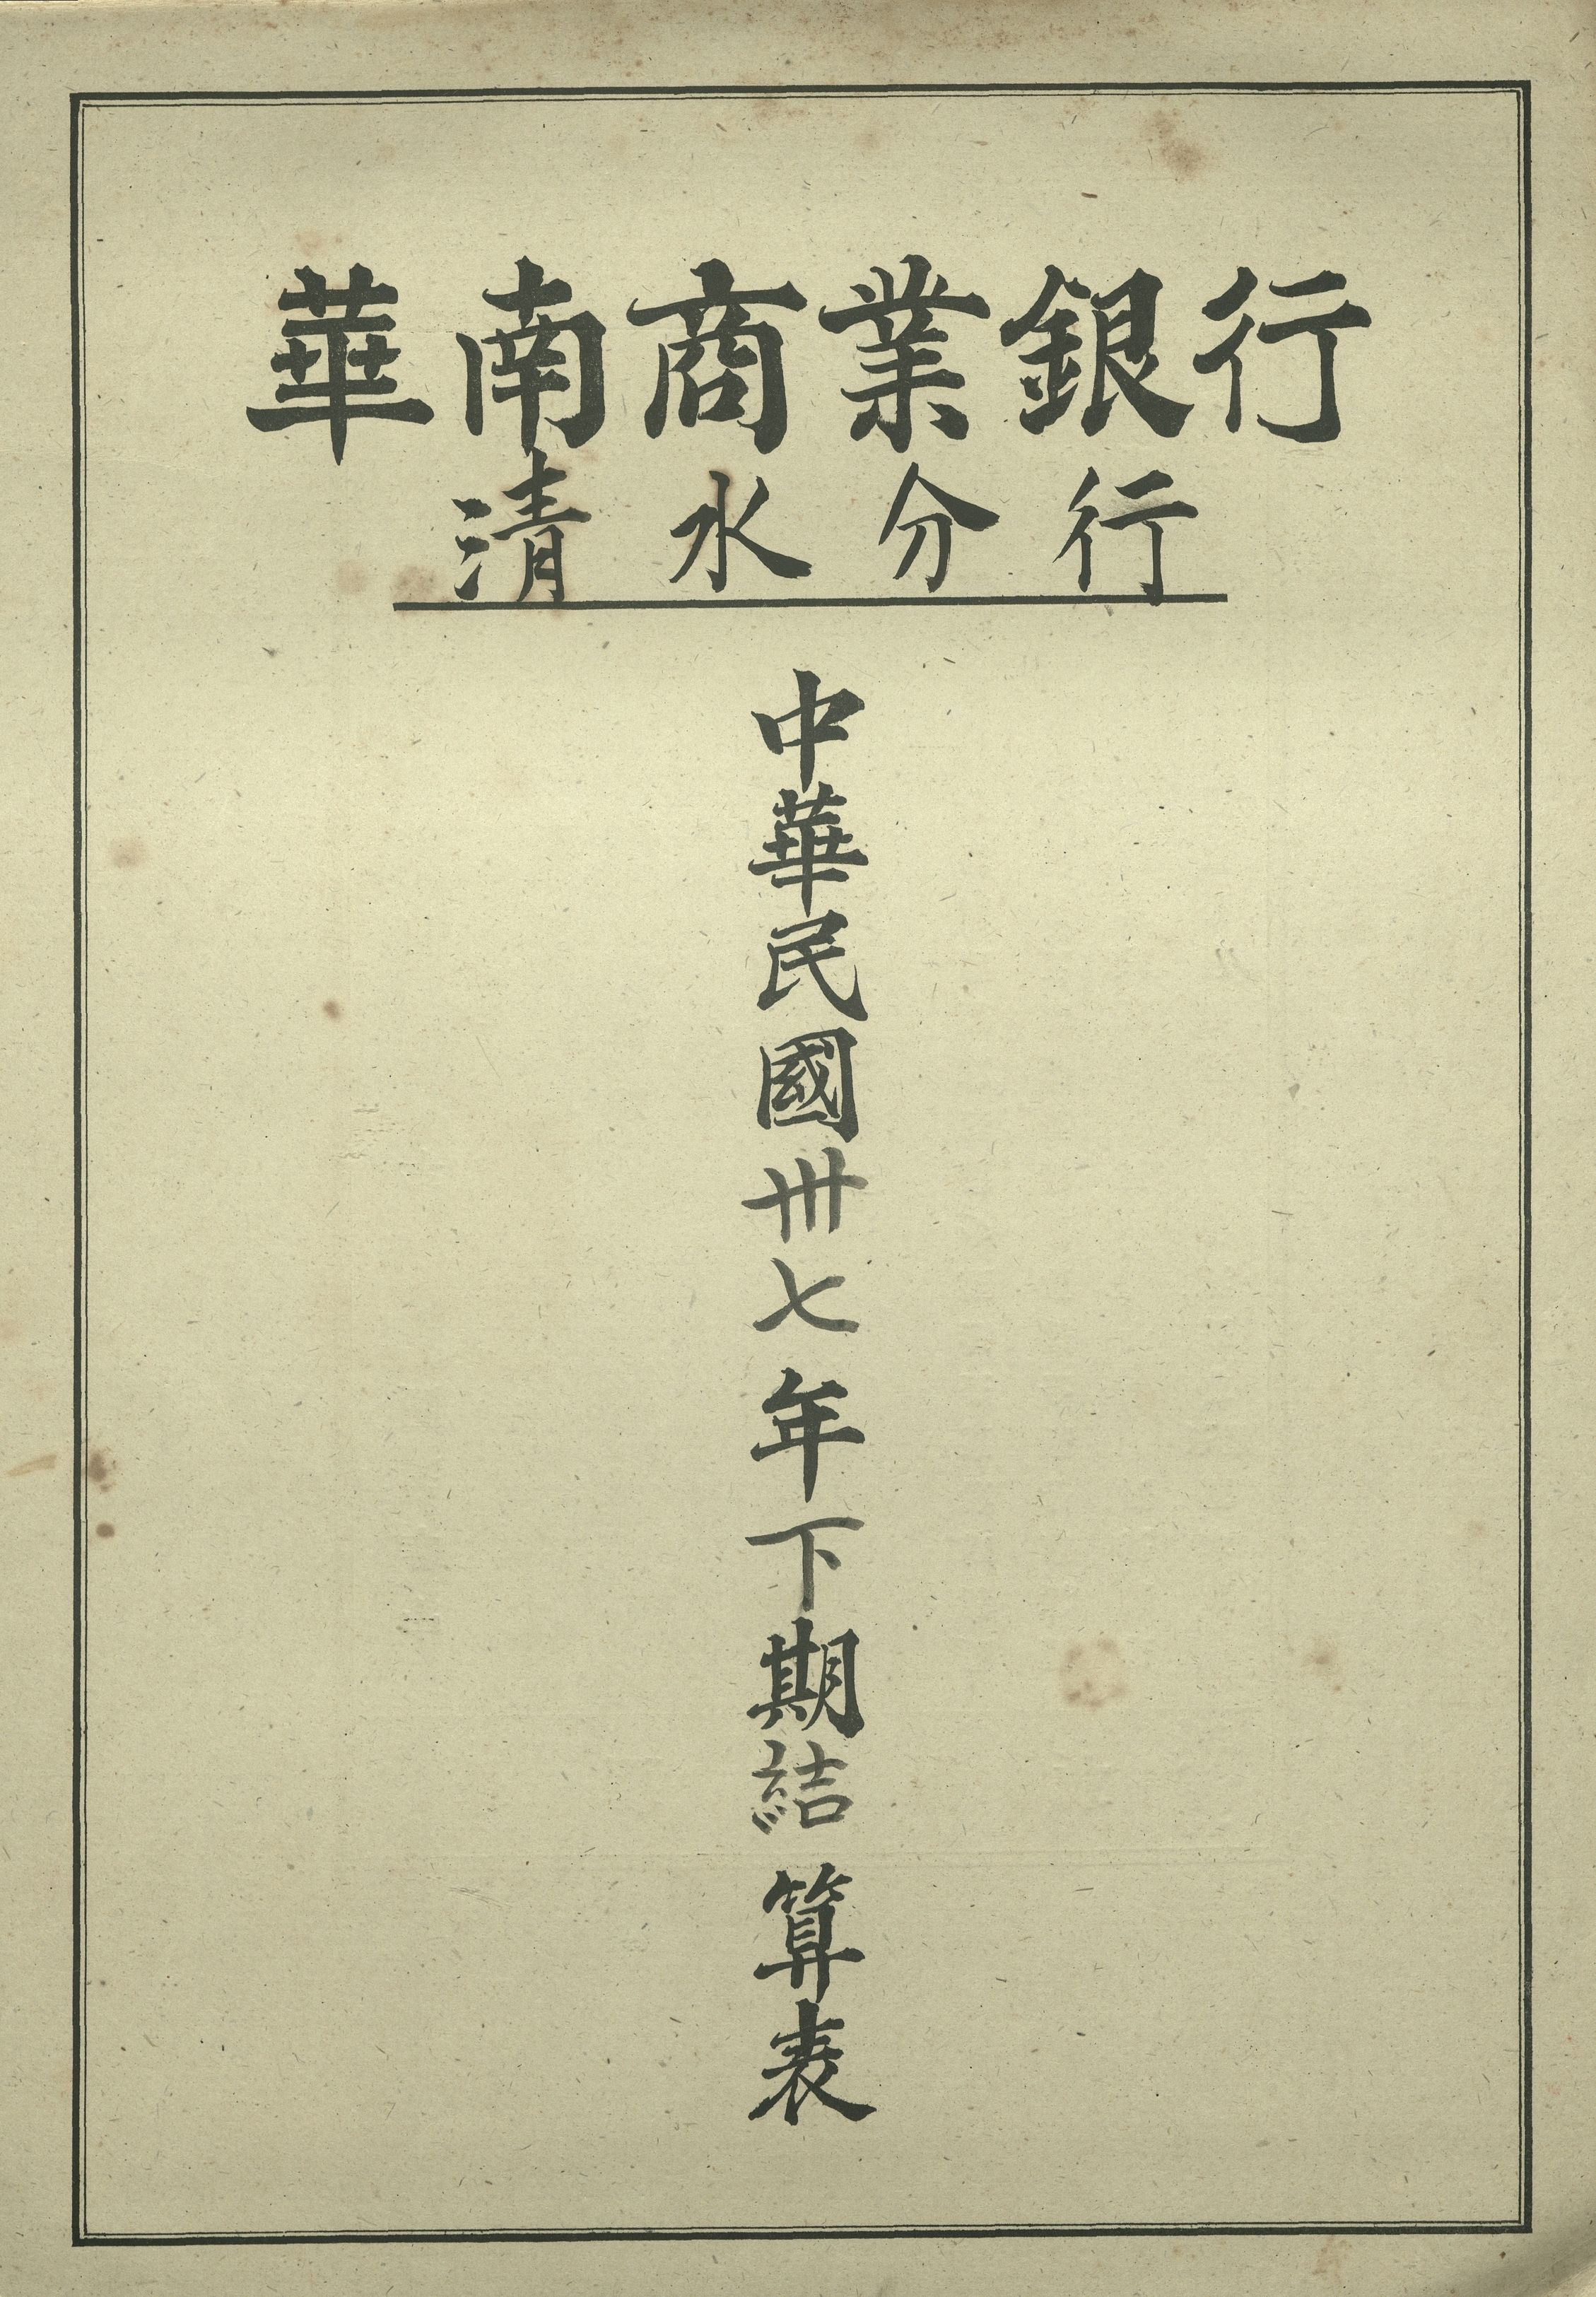 華南商業銀行
清水分行
中華民國卅七年下期結算表